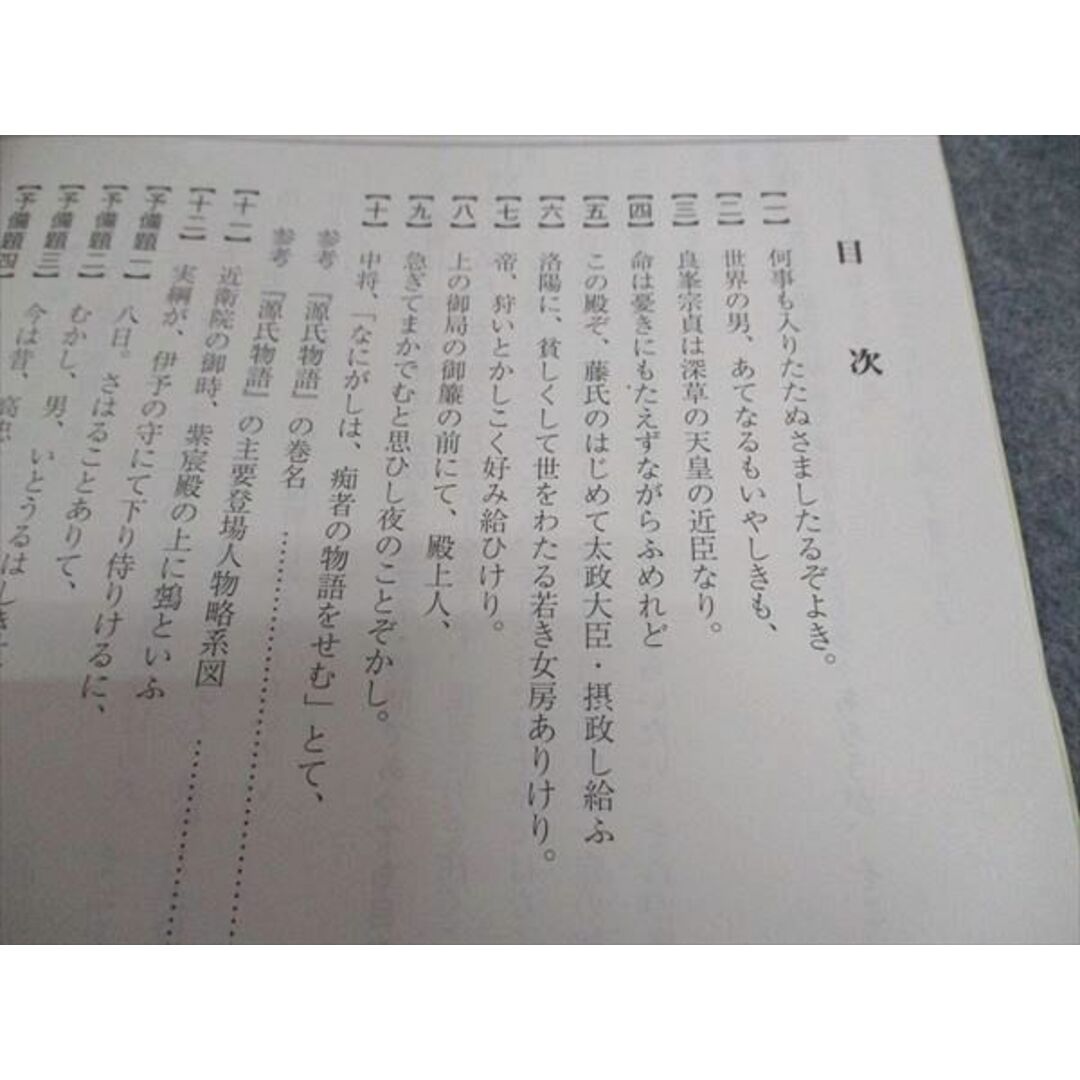 目次
【一】 何事も入りたたぬさましたるぞよき。
【二】 世界の男、あてなるもいやしきも、
【三】 良峯宗貞は深草の天皇の近臣なり。
【四】 命は憂きにもたえずながらふめれど
【五】 この殿ぞ、藤氏のはじめて太政大臣・摂政し給ふ
【六】 洛陽に、貧しくして世をわたる若き女房ありけり。
【七】 帝、狩いとかしこく好み給ひけり。
【八】 上の御局の御簾の前にて、殿上人、
【九】 急ぎてまかでむと思ひし夜のことぞかし。
【十】 中将、「なにがしは、痴者の物語をせむ」とて、
参考 『源氏物語』の巻名 ……………………
参考 『源氏物語』の主要登場人物略系図 ……………
【十一】 近衛院の御時、紫宸殿の上に鵼といふ
【十二】 実綱が、伊予の守にて下り侍りけるに、
【予備題一】 八日。さはることありて、
【予備題二】 むかし、男、いとうるはしき
【予備題三】 今は昔、高忠
【予備題四】